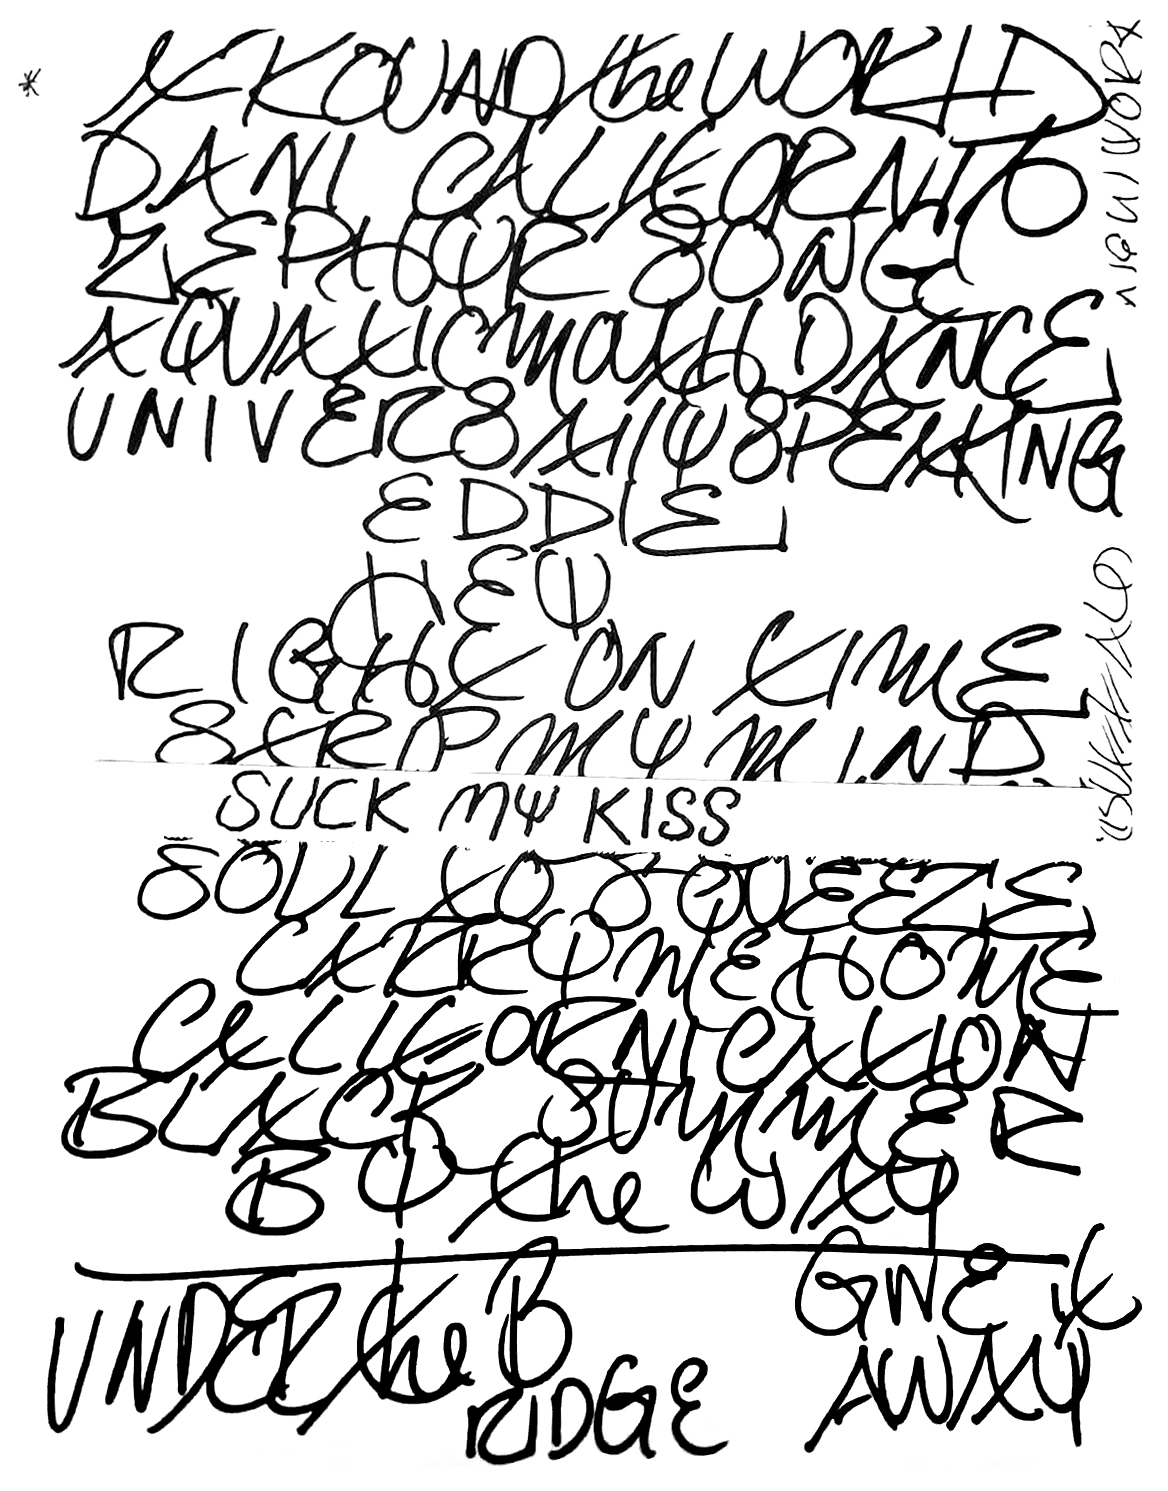 AROUND the WORLD
DANI CALIFORNIA
ZEPHYR SONG
AQUATIC MOUTH DANCE
UNIVERSALLY SPEAKING
EDDIE
HEY
RIGHT ON TIME
STRIP MY MIND
SUCK MY KISS
SOUL TO SQUEEZE
CARRY ME HOME
CALIFORNICATION
BLACK SUMMER
BY the WAY
UNDER the BRIDGE
GIVE it AWAY